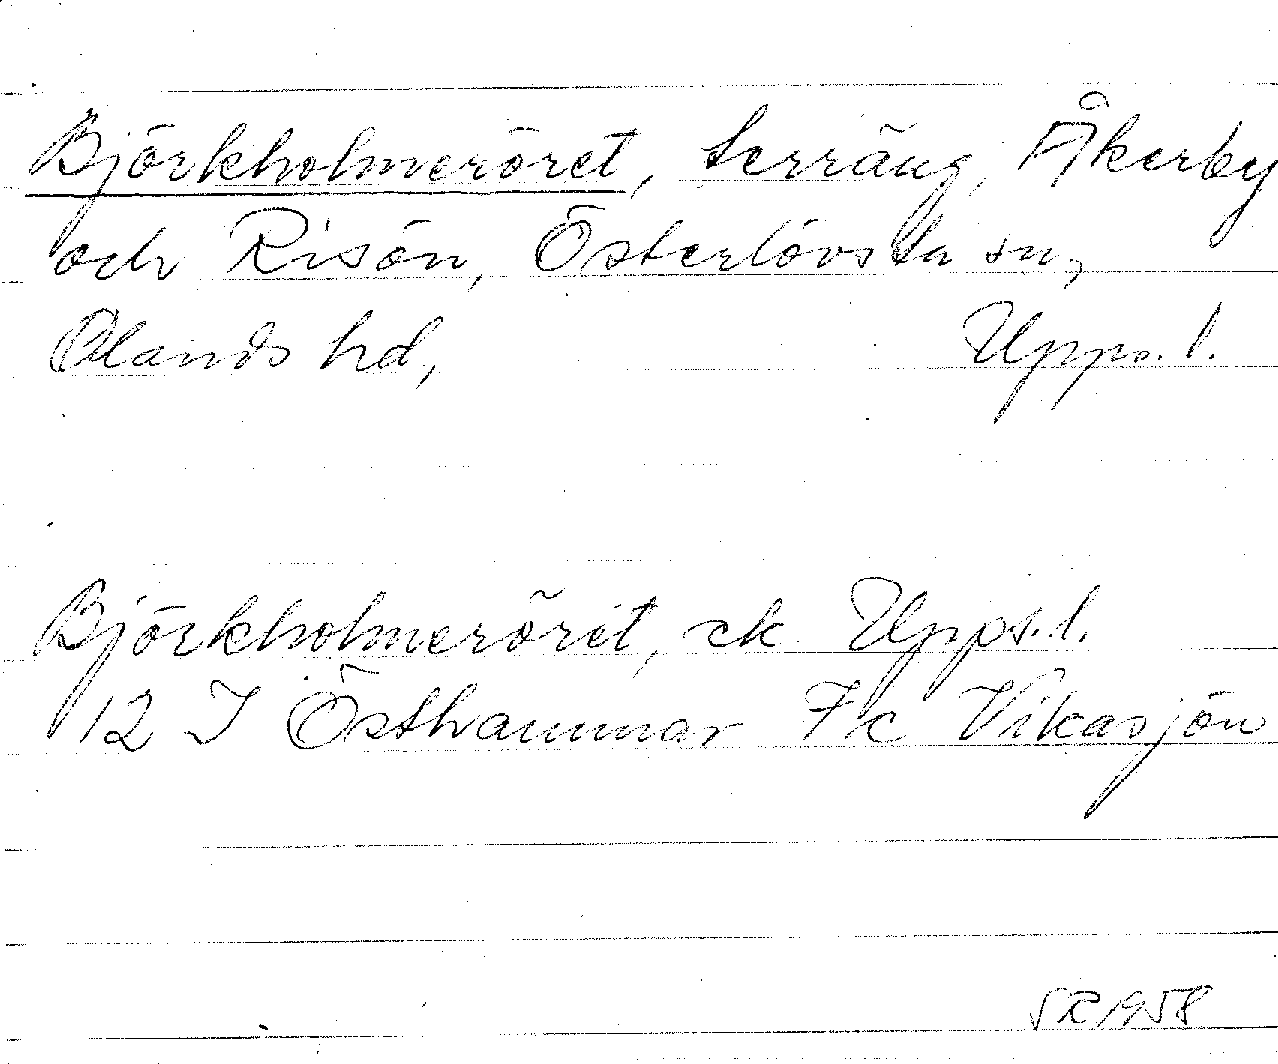 Björkholmeröret, terräng, Åkerby
och Risön, Österlövsta sn,
Olands hd, Upps. l.
Björkholmeröret, ek Upps. l.
12 I Östhammar Fc Vikasjön
SR 1958